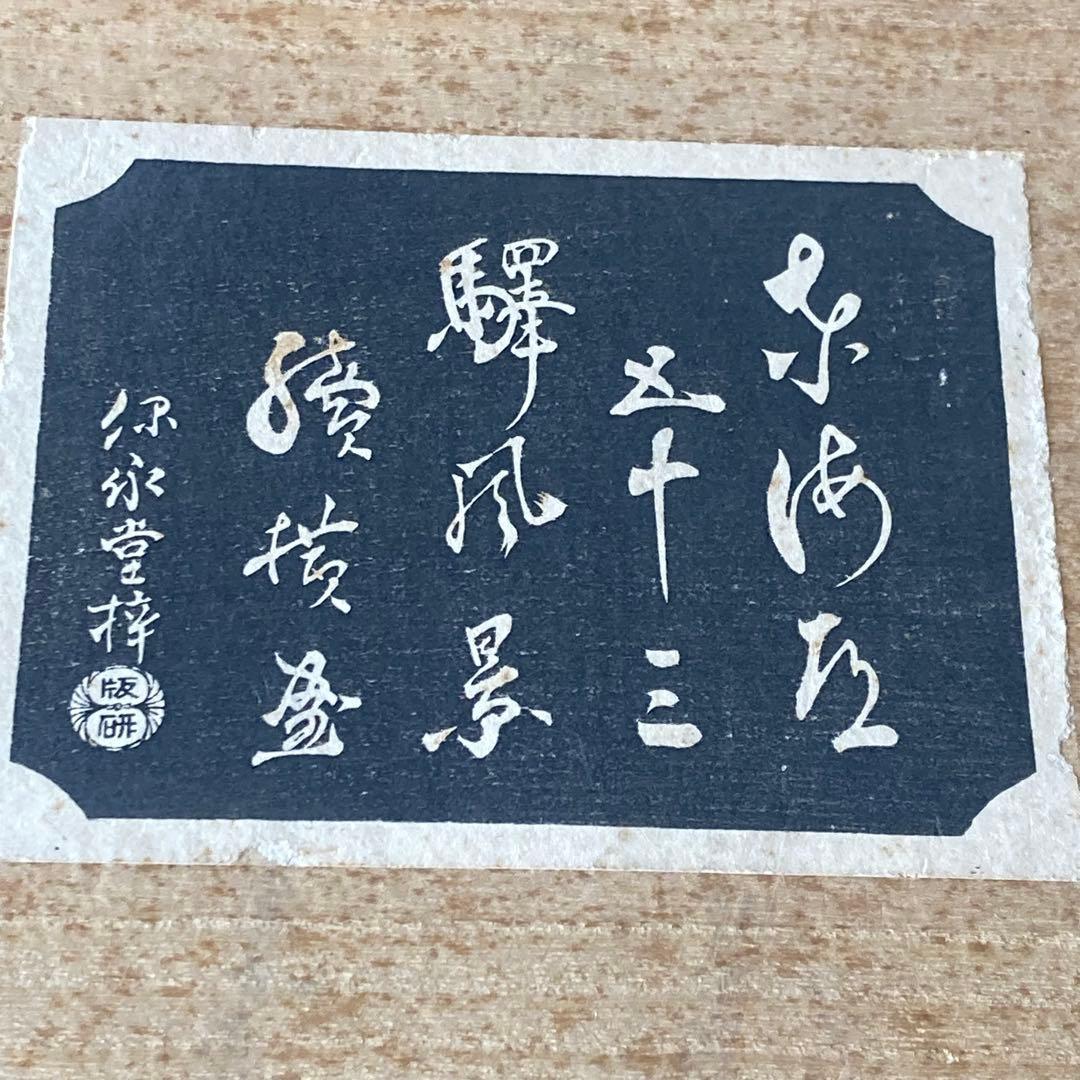 東海道
五十三
驛風景
續横畫
保永堂梓
版研